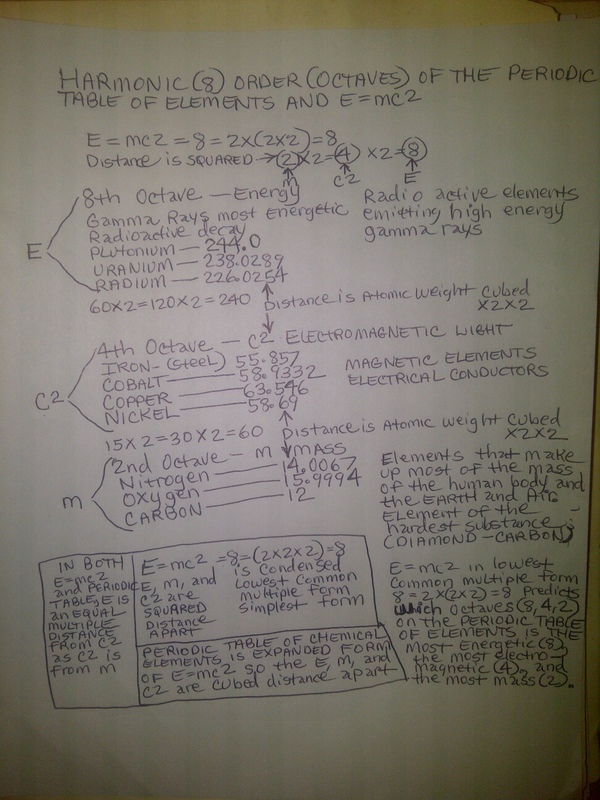 HARMONIC (8) ORDER (OCTAVES) OF THE PERIODIC
TABLE OF ELEMENTS AND E=mc2
E=mc2=8=2x(2x2)=8
Distance is SQUARED→(2)x2=(4) x2=(8)
m C2 E
8th Octave — Energy
Gamma Rays most energetic
Radioactive decay
PLUTONIUM — 244.0
URANIUM — 238.0289
RADIUM — 226.0254
E
Radio active elements
emitting high energy
gamma rays
60x2=120x2=240
Distance is Atomic Weight Cubed
x2x2
4th Octave — C2 ELECTROMAGNETIC LIGHT
IRON-(Steel) 55.857
COBALT — 58.9332
COPPER — 63.546
NICKEL — 58.69
C2
MAGNETIC ELEMENTS
ELECTRICAL CONDUCTORS
15x2=30x2=60
Distance is Atomic Weight Cubed
x2x2
2nd Octave — m MASS
Nitrogen — 14.0067
Oxygen — 15.9994
CARBON — 12
m
Elements that make
up most of the mass
of the human body and
the EARTH and Air.
Element of the
hardest substance -
(DIAMOND-CARBON)
IN BOTH
E=mc2
and PERIODIC
TABLE, E IS
an EQUAL
MULTIPLE
DISTANCE
From C2
as C2 is
From m
E=mc2 =8=(2x2x2)=8
E, m, and
C2 are
SQUARED
DISTANCE
APART
is Condensed
Lowest Common
multiple form
simplest form
PERIODIC TABLE OF CHEMICAL
ELEMENTS IS EXPANDED FORM
OF E=mc2 so the E, M, and
C2 are cubed distance apart
E=mc2 in lowest
Common multiple form
8=2x(2x2)=8 Predicts
which Octaves (8,4,2)
on the PERIODIC TABLE
OF ELEMENTS IS THE
Most Energetic (8),
the most electro-
magnetic (4), and
the most mass (2).